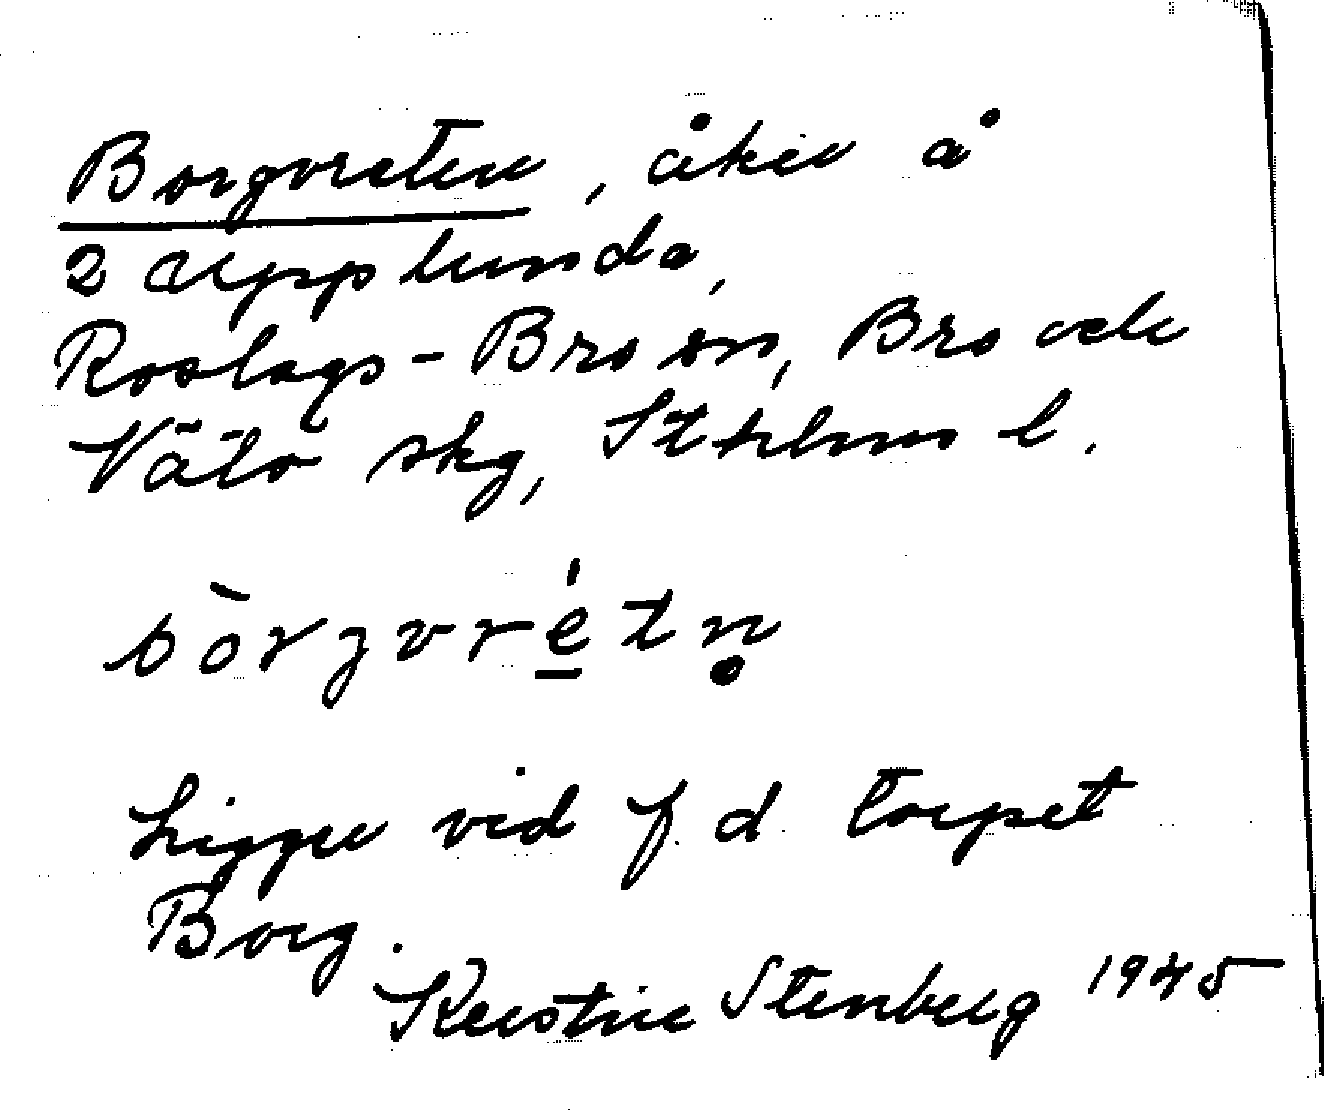 Borgvreten, åker å
2 Upplunda,
Roslags-Bro sn, Bro och
Vätö skg, Sthlms l.
bòrgvrétṇ
Ligger vid f.d torpet
Borg.
Kerstin Stenberg 1945